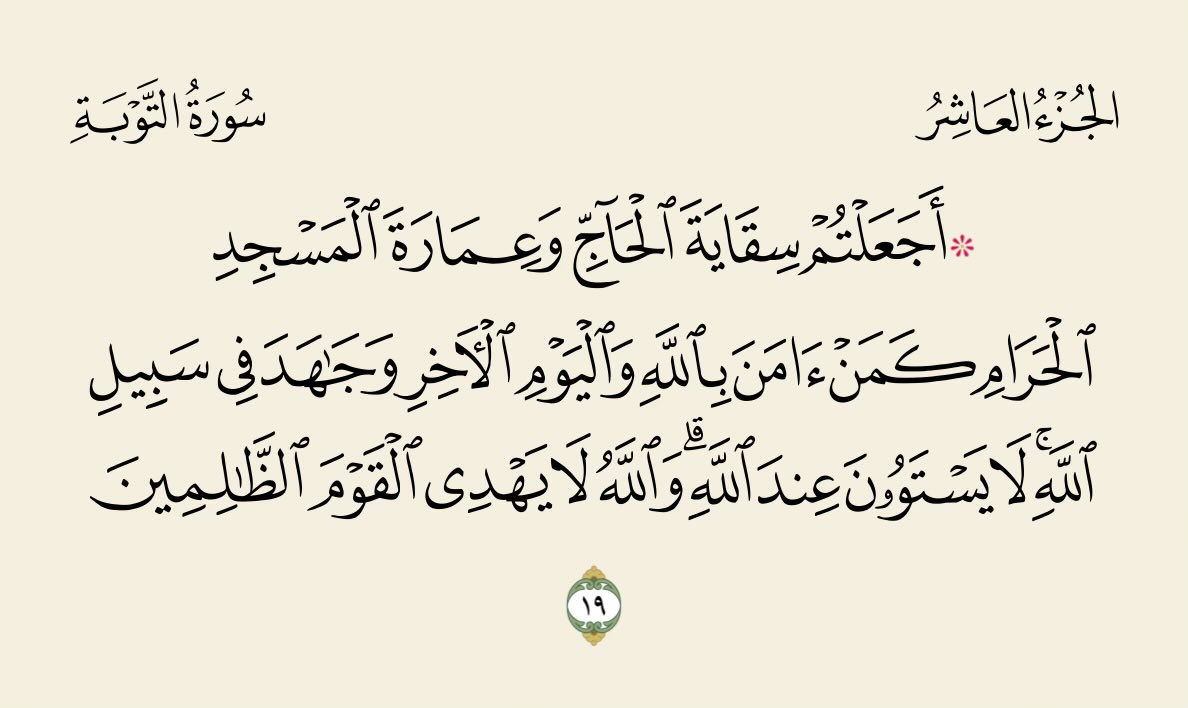 الجُزْءُ العَاشِرُ
سُورَةُ التَّوْبَةِ
۞ أَجَعَلۡتُمۡ سِقَايَةَ ٱلۡحَآجِّ وَعِمَارَةَ ٱلۡمَسۡجِدِ
ٱلۡحَرَامِ كَمَنۡ ءَامَنَ بِٱللَّهِ وَٱلۡيَوۡمِ ٱلۡأٓخِرِ وَجَٰهَدَ فِي سَبِيلِ
ٱللَّهِۚ لَا يَسۡتَوُۥنَ عِندَ ٱللَّهِۗ وَٱللَّهُ لَا يَهۡدِي ٱلۡقَوۡمَ ٱلظَّٰلِمِينَ
١٩